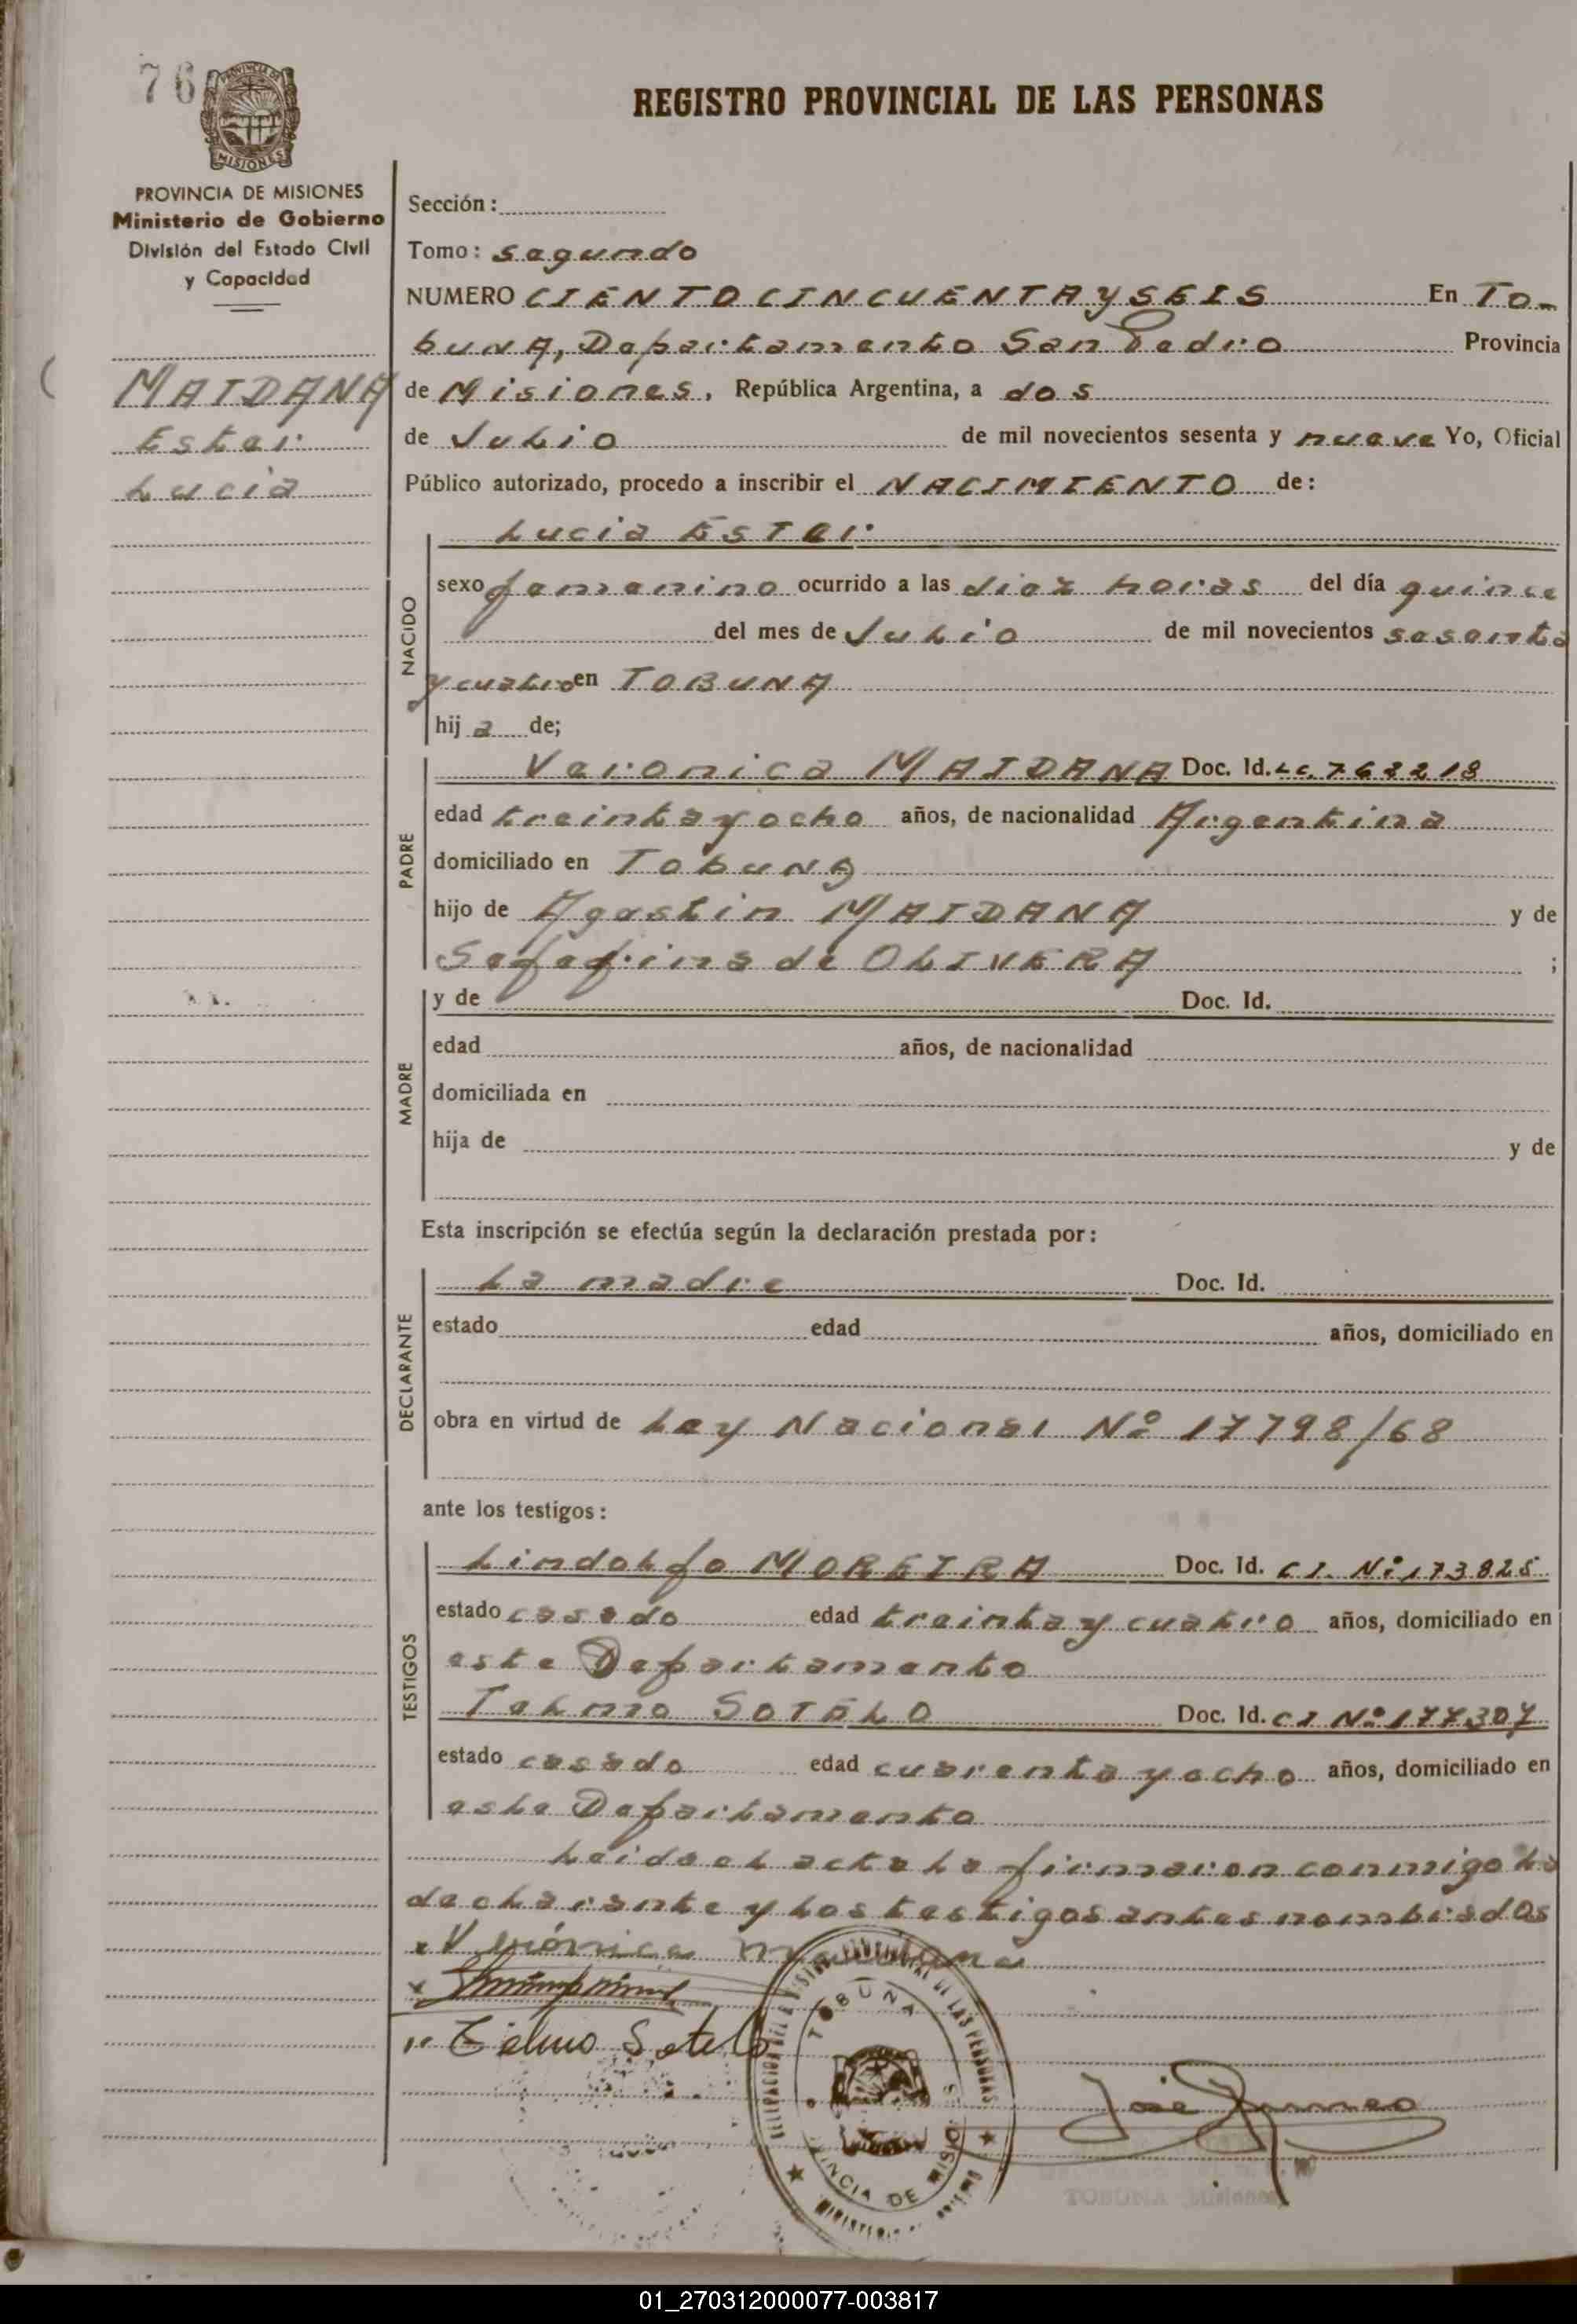 76
REGISTRO PROVINCIAL DE LAS PERSONAS
PROVINCIA DE MISIONES
Ministerio de Gobierno
División del Estado Civil
y Capacidad
MAIDANA
Ester
Lucia
Sección:
Tomo: segundo
NUMERO CIENTO CINCUENTA Y SEIS En TO-
bUNA, Departamento San Pedro Provincia
de Misiones, República Argentina, a dos
de Julio de mil novecientos sesenta y nueve Yo, Oficial
Público autorizado, procedo a inscribir el NACIMIENTO de:
Lucia ESTer
NACIDO
sexo femenino ocurrido a las diez horas del día quince
del mes de Julio de mil novecientos sesenta
y cuatro en TOBUNA
hija de;
PADRE
Veronica MAIDANA Doc. Id. LC.
edad treinta y ocho años, de nacionalidad Argentina
domiciliado en TobUNA
hijo de Agostin MAIDANA y de
de OLIVERA ;
MADRE
y de Doc. Id.
edad años, de nacionalidad
domiciliada en
hija de y de
Esta inscripción se efectúa según la declaración prestada por:
DECLARANTE
La madre Doc. Id.
estado edad años, domiciliado en
obra en virtud de Ley Nacional Nº 17798/68
ante los testigos:
TESTIGOS
Lindolfo MOREIRA Doc. Id. C I. Nº 173825
estado casado edad treinta y cuatro años, domiciliado en
este Departamento
Telmo SOTELO Doc. Id. C I Nº 177307
estado casado edad cuarenta y ocho años, domiciliado en
este Departamento
Leida el acta la firmaron conmigo la
declarante y los testigos antes nombrados
Verónica maidana
Telmo Sotelo
DELEGACION DEL REGISTRO PROVINCIAL DE LAS PERSONAS
TOBUNA
PROVINCIA DE MISIONES
MINISTERIO DE GOBIERNO
José
TOBUNA Misiones
01_270312000077-003817